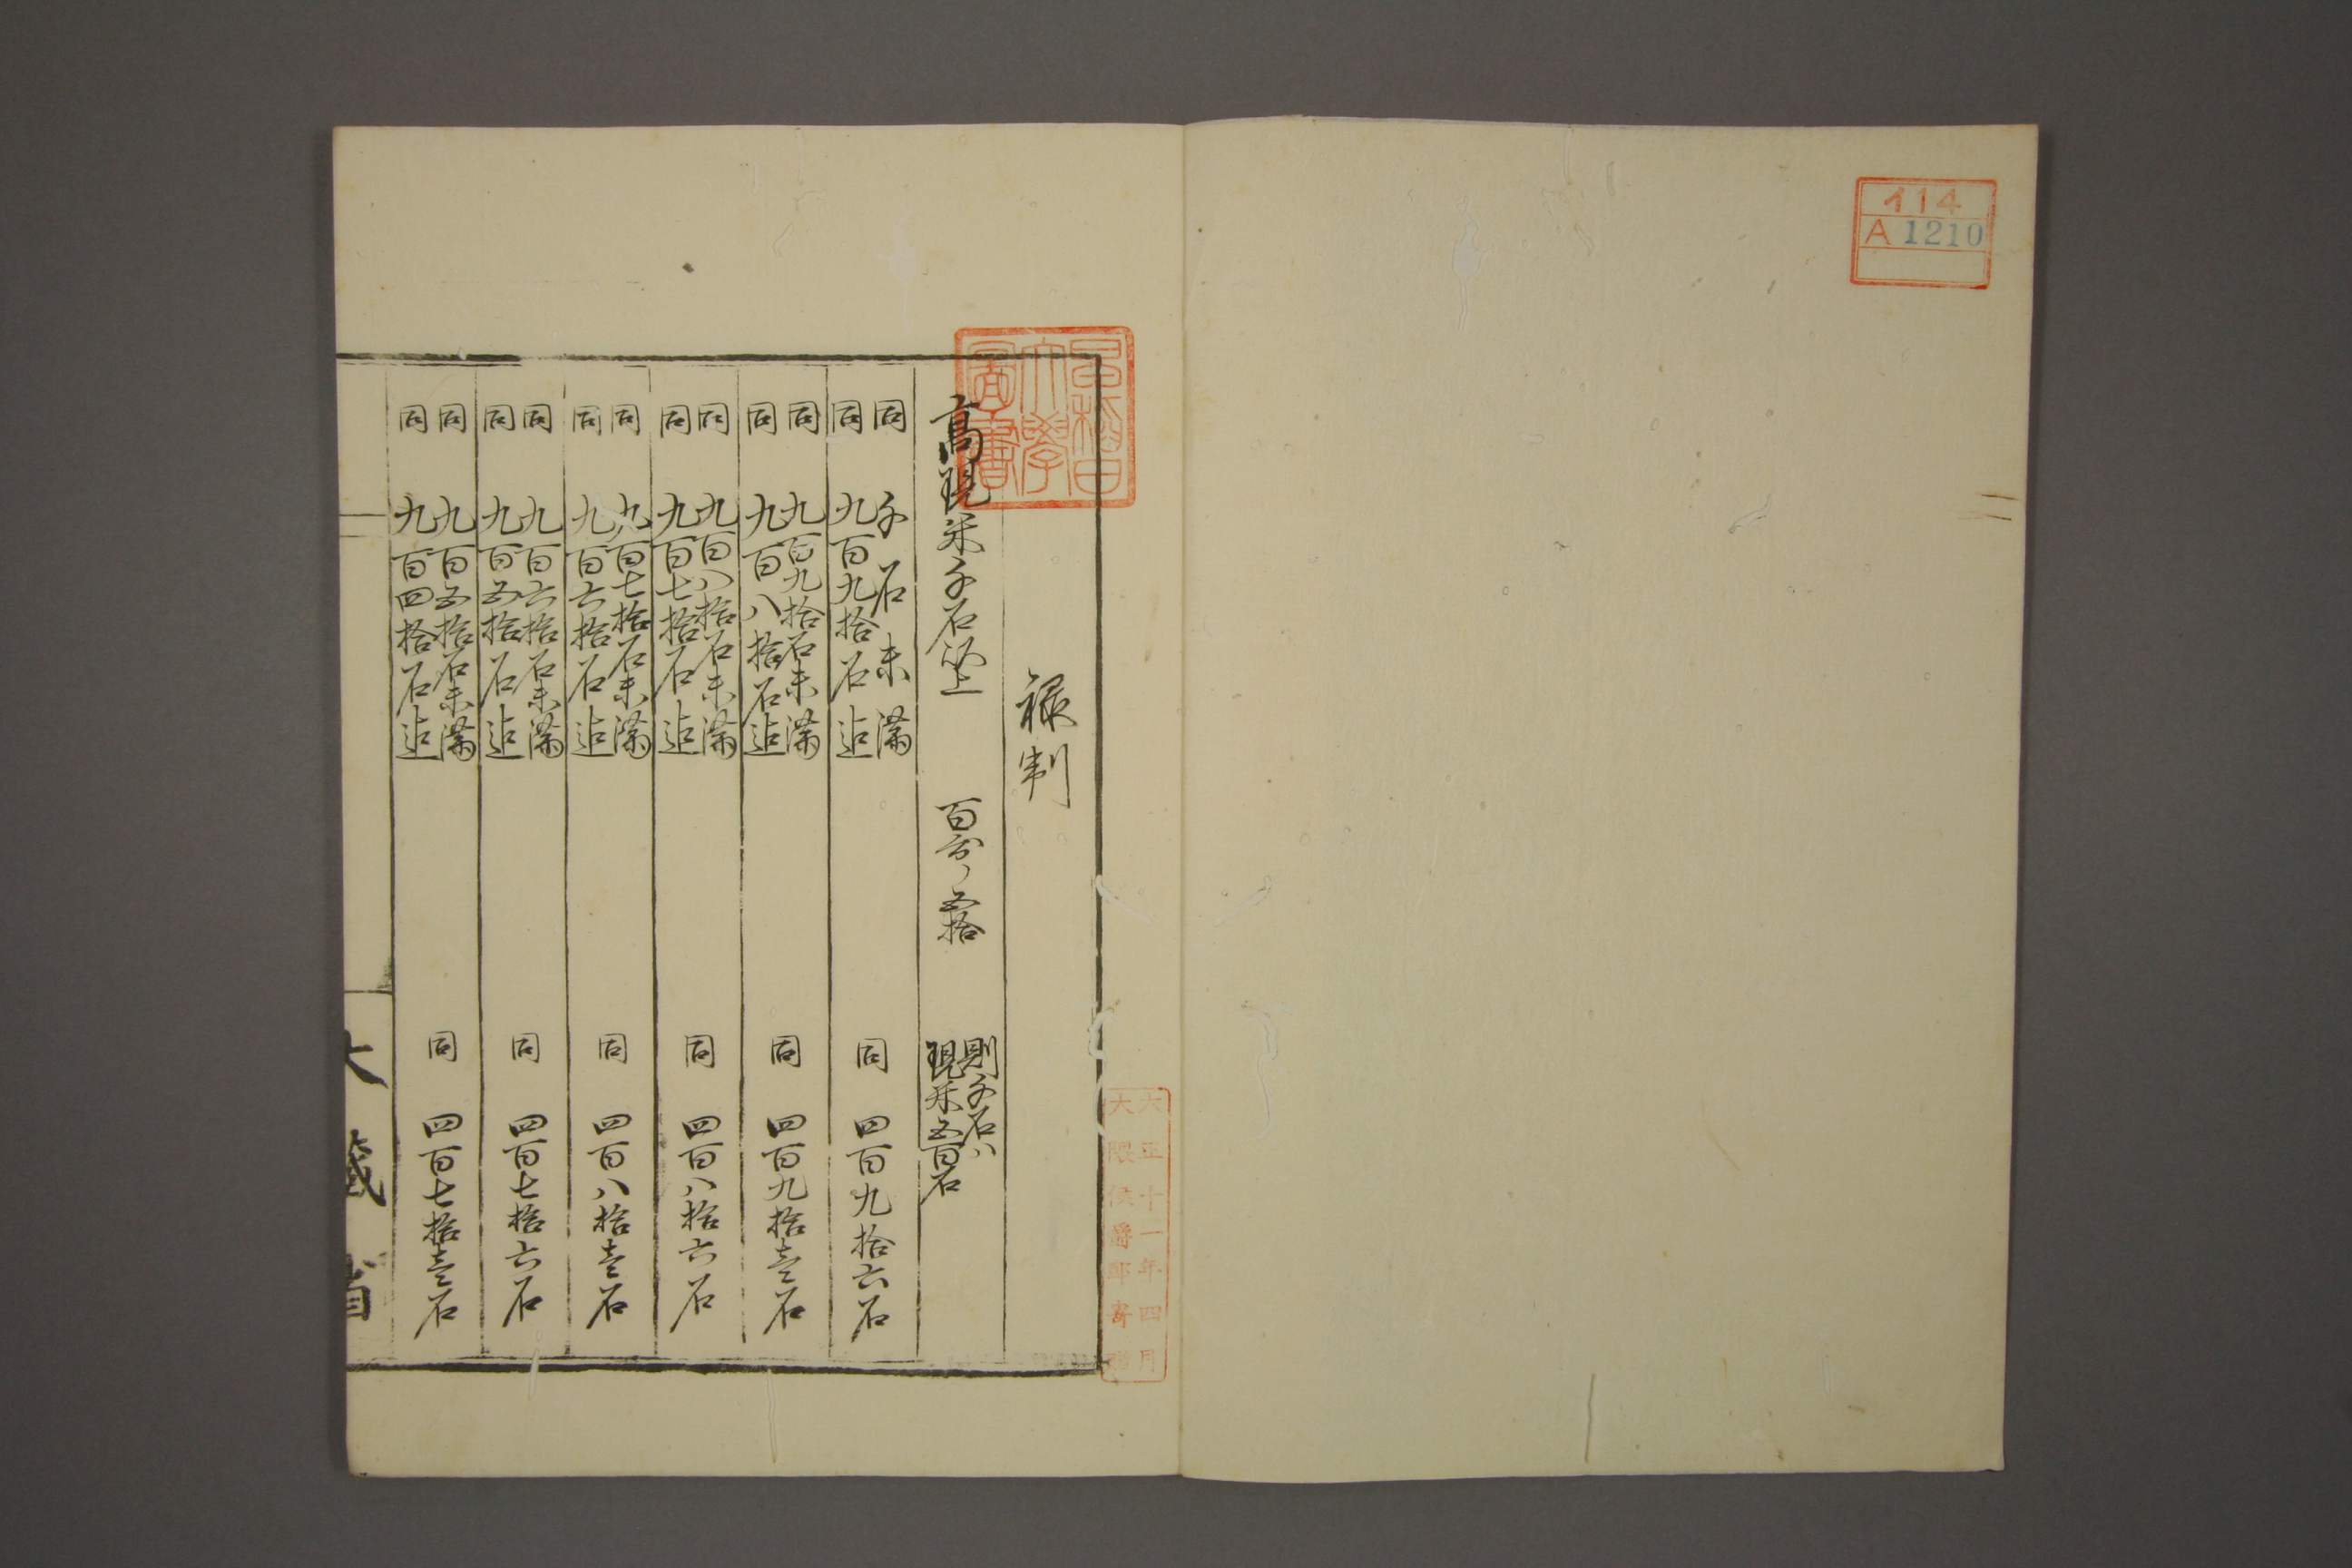 イ14
A 1210
早稲田
大學
圖書
大正十一年四月
大隈侯爵邸寄贈
禄制
高現米千石以上 百分ノ五拾 則千石ハ
現米五百石
同 千石未満
同 九百九拾石迠 同 四百九拾六石
同 九百九拾石未満
同 九百八拾石迠 同 四百九拾壱石
同 九百八拾石未満
同 九百七拾石迠 同 四百八拾六石
同 九百七拾石未満
同 九百六拾石迠 同 四百八拾壱石
同 九百六拾石未満
同 九百五拾石迠 同 四百七拾六石
同 九百五拾石未満
同 九百四拾石迠 同 四百七拾壱石
大藏省